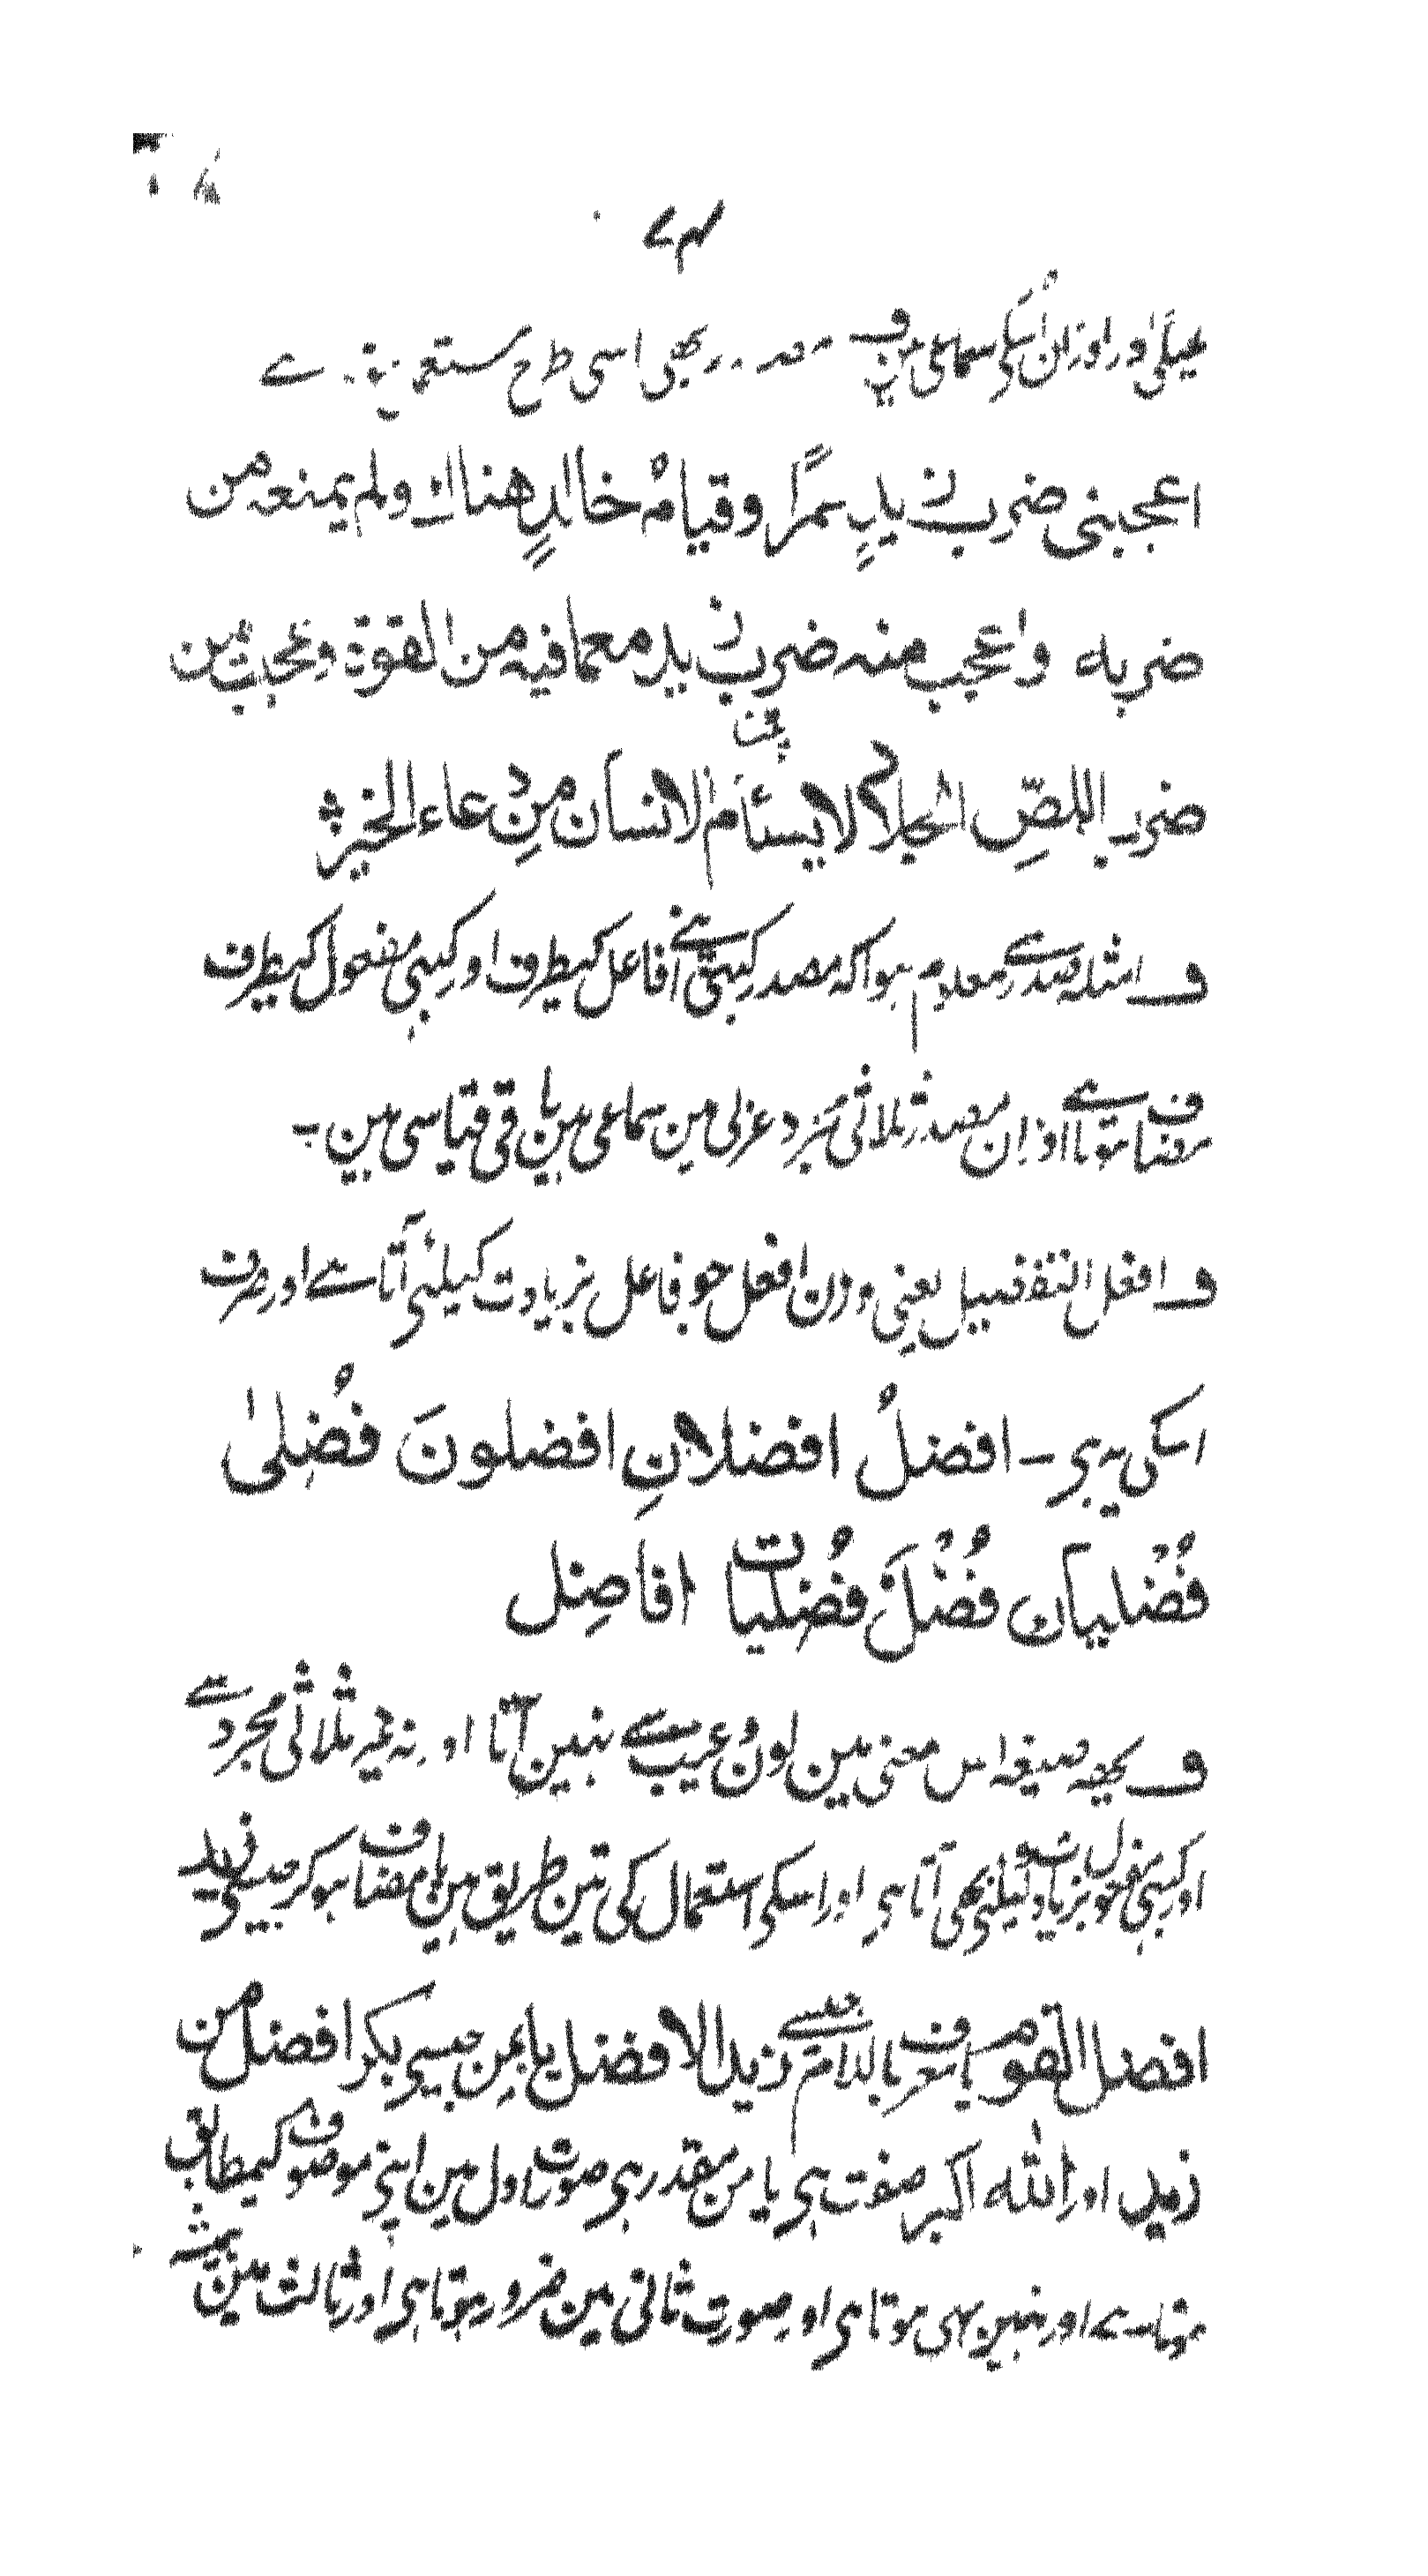 ۷۴
علیٰ اور اوزان اُسکی سماعی ہین ف مصدر بھی اسی طرح مستعمل ہوتا ہے
اعجبنی ضرب زیدٍ عمرًا و قیامُ خالدٍ هناك ولم یمنعه من
ضربه واعجب منه ضرب زید معمافیه من القوة وعجبت من
ضرب اللصِّ الجلادُ لا یسئام الانسان مِن دعاء الخیر
ف امثلہ صدر سے معلوم ہوا کہ مصدر کبھی اپنے فاعل کیطرف اور کبھی مفعول کیطرف
مضاف ہوتا ہے اوزان مصدر ثلاثی مجرد عربی مین سماعی ہین باقی قیاسی ہین ۔
ف افعل التفضیل یعنی وزن افعل جو فاعل بزیادت کیلئے آتا ہے اور صرف
اسکی یہ ہی ۔ افضلُ افضلانِ افضلونَ فُضلیٰ
فُضْلیان فُضَلٌ فُضلیات افاضِل
ف یہہ صیغہ اس معنی مین لون و عیب سے نہین آتا اور نہ غیر ثلاثی مجرد سے
اور کبھی مفعول بزیادت کیلئے بھی آتا ہی اور اسکی استعمال کی تین طریق ہین یا مضاف ہو کر جیسی زید
افضل القوم یا معرف باللام جیسے زید الافضل یا بمن جیسی بکر افضل من
زید اور اللہ اکبر صفت ہی یا من مقدر ہی صورت اول مین اپنی موصوف کیمطابق
ہوتا ہے اور نہین بھی ہوتا ہی اور صورت ثانی مین ضرور ہوتا ہی اور ثالث مین ہمیشہ